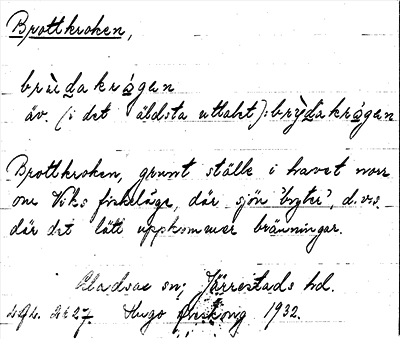 Brottkroken,
brìdakrågan
äv. (i det äldsta uttalet): brỳdakrågan
Brottkroken, grunt ställe i havet norr
om Viks fiskeläge, där sjön 'bryter', d.v.s.
där det lätt uppkommer bränningar.
sn; Järrestads hd.
Hugo Areskog 1932.